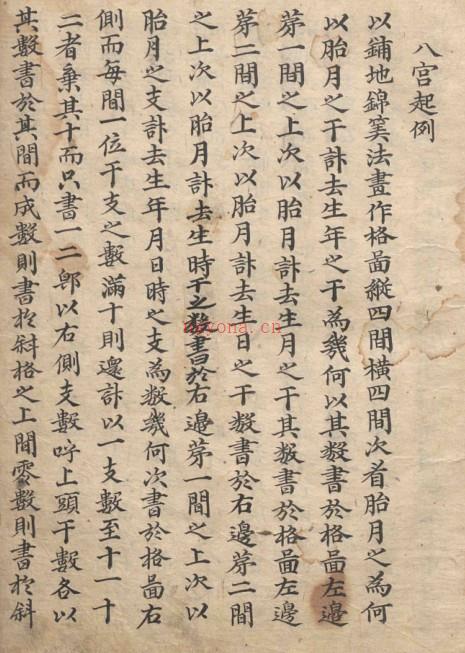 八宮起例
以鋪地錦筭法畫作格啚縱四間橫四間次看胎月之為何
以胎月之干計去生年之干為幾何以其数書於格啚左邊
苐一間之上次以胎月計去生月之干其数書於格啚左邊
苐二間之上次以胎月計去生日之干数書於右邊苐二間
之上次以胎月計去生時干之数書於右邊苐一間之上次以
胎月之支計去生年月日時之支為数幾何次書於格啚右
側而每間一位干支之數滿十則還計以一支數至十一十
二者棄其十而只書一二郎以右側支數呼上頭干數各以
其數書於其間而成數則書於斜格之上間零數則書於斜
beyona.cn